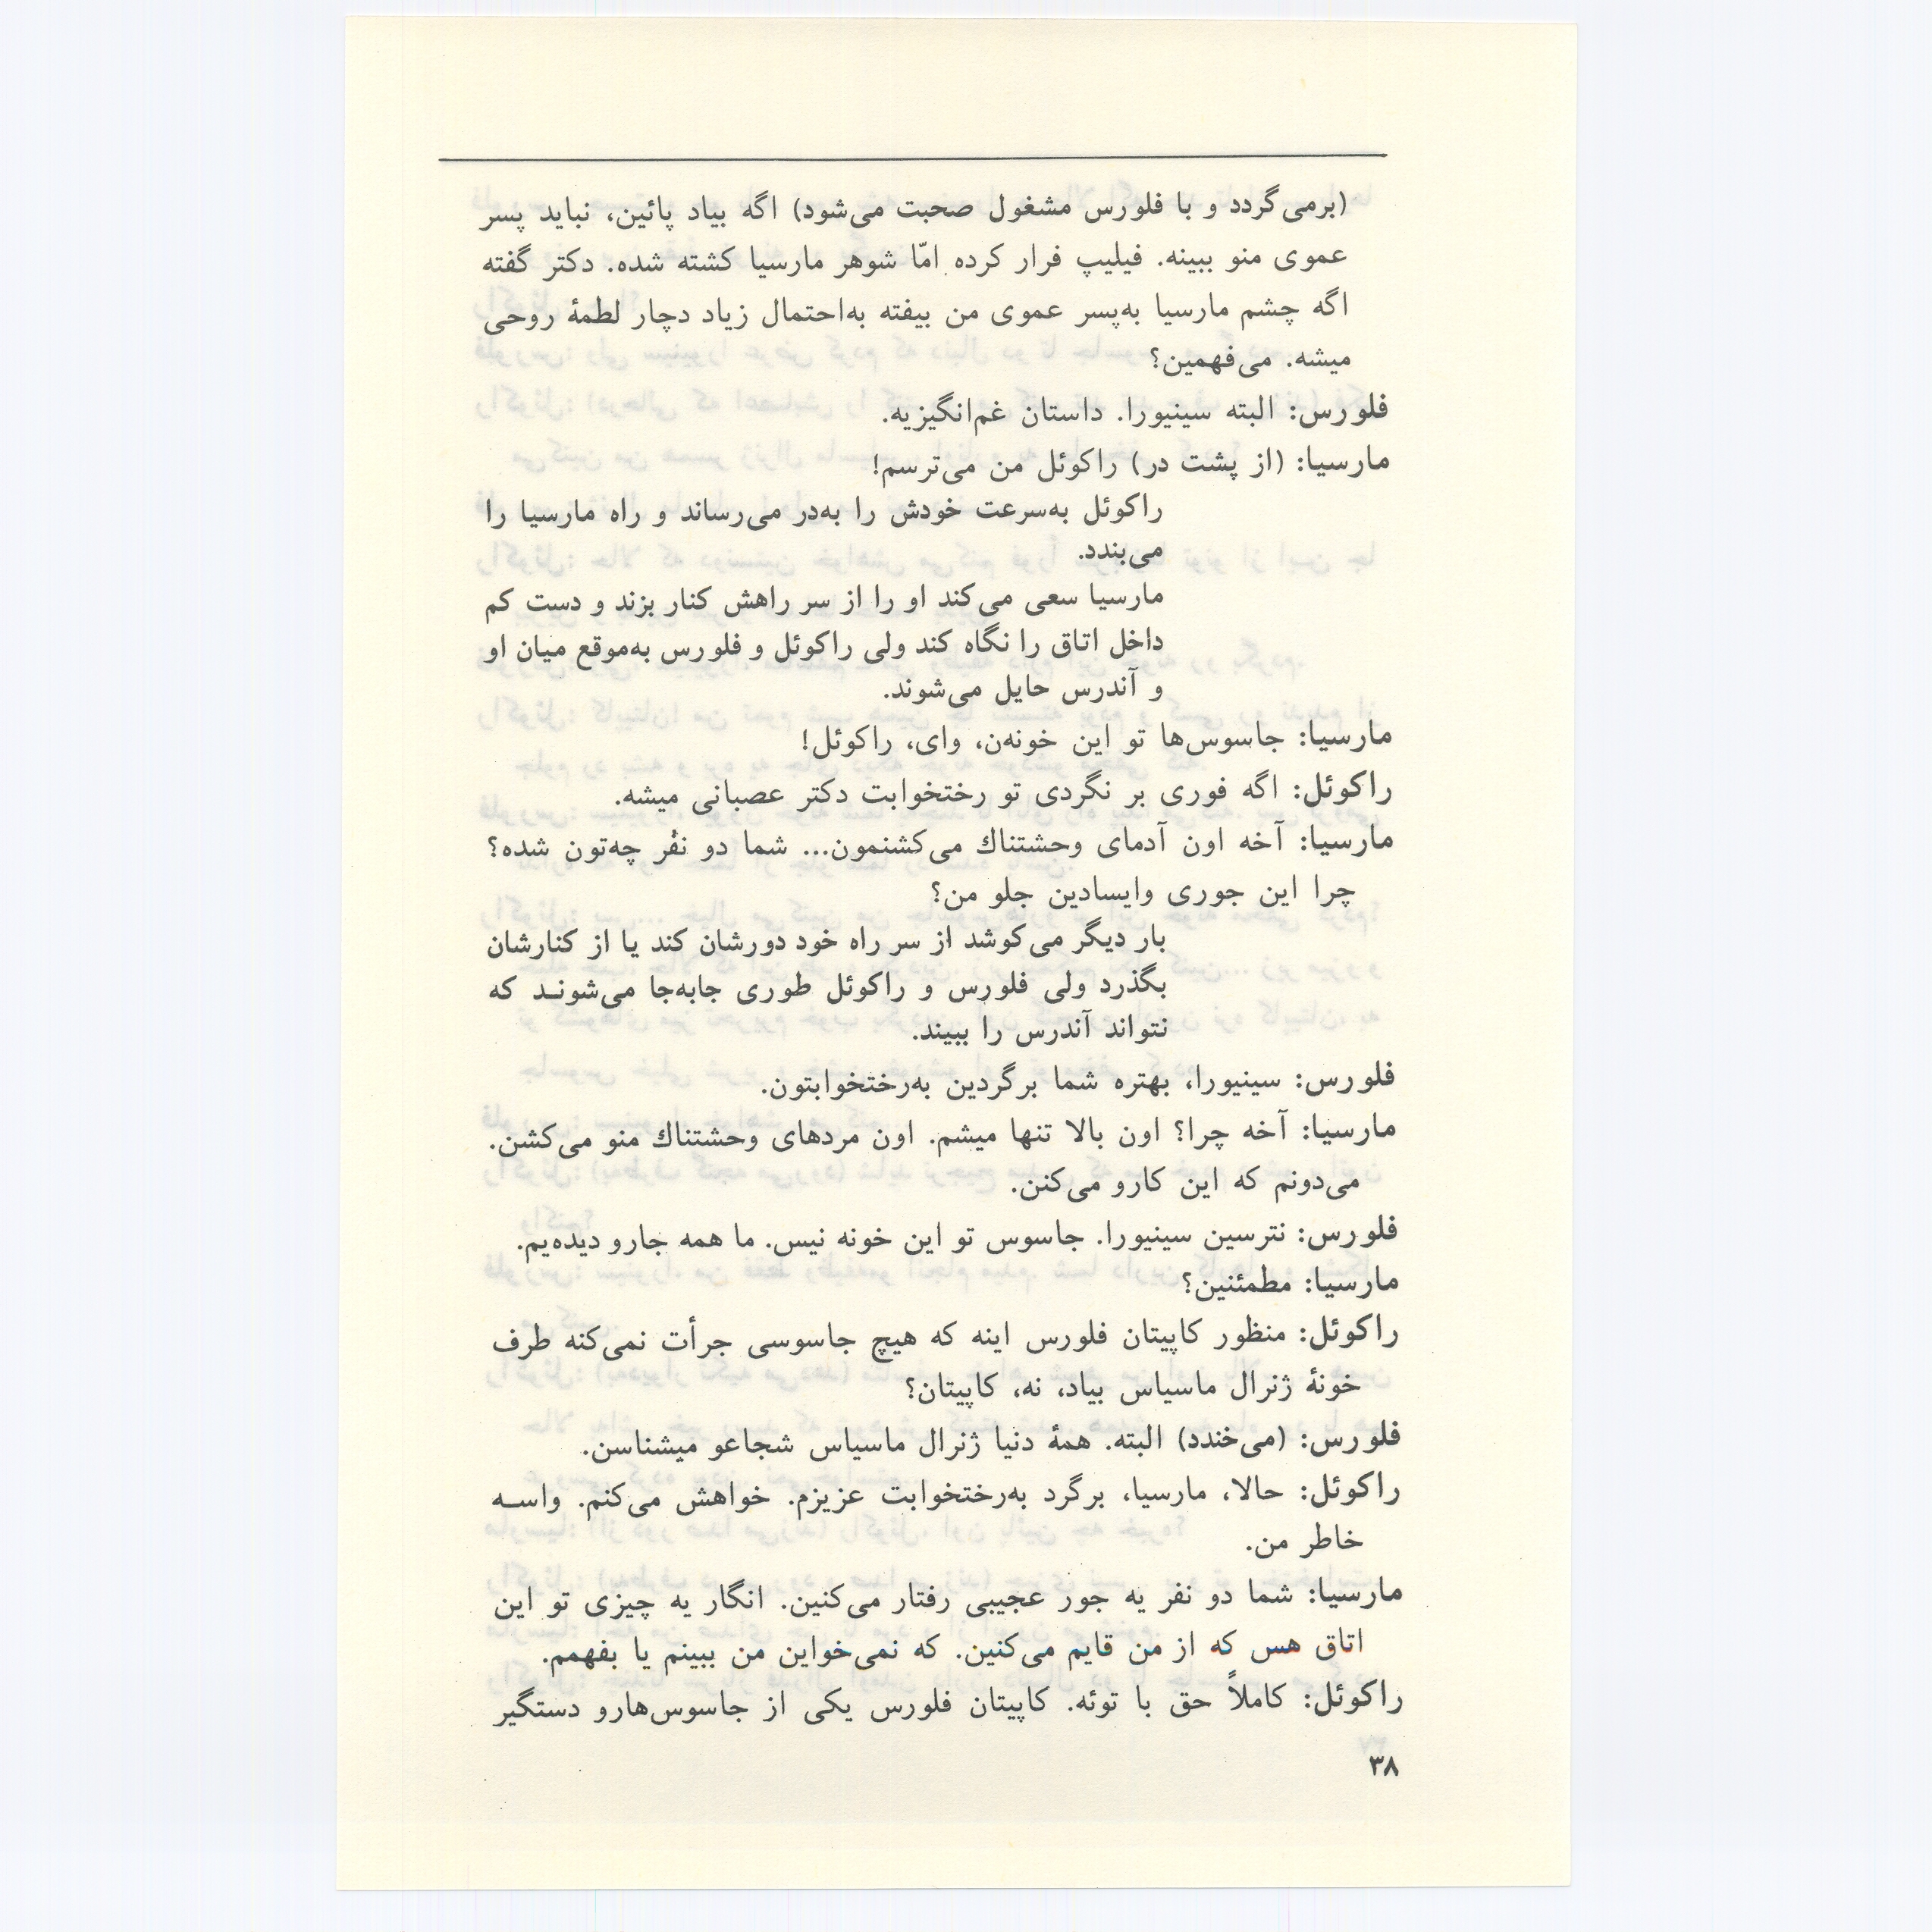 (برمی‌گردد و با فلورس مشغول صحبت می‌شود) اگه بیاد پائین، نباید پسر
عموی منو ببینه. فیلیپ فرار کرده امّا شوهر مارسیا کشته شده. دکتر گفته
اگه چشم مارسیا به‌پسر عموی من بیفته به‌احتمال زیاد دچار لطمهٔ روحی
میشه. می‌فهمین؟
فلورس: البته سینیورا. داستان غم‌انگیزیه.
مارسیا: (از پشت در) راکوئل من می‌ترسم!
راکوئل به‌سرعت خودش را به‌در می‌رساند و راه مارسیا را
می‌بندد.
مارسیا سعی می‌کند او را از سر راهش کنار بزند و دست کم
داخل اتاق را نگاه کند ولی راکوئل و فلورس به‌موقع میان او
و آندرس حایل می‌شوند.
مارسیا: جاسوس‌ها تو این خونه‌ن، وای، راکوئل!
راکوئل: اگه فوری بر نگردی تو رختخوابت دکتر عصبانی میشه.
مارسیا: آخه اون آدمای وحشتناك می‌کشنمون... شما دو نفر چه‌تون شده؟
چرا این جوری وایسادین جلو من؟
بار دیگر می‌کوشد از سر راه خود دورشان کند یا از کنارشان
بگذرد ولی فلورس و راکوئل طوری جابه‌جا می‌شونـد که
نتواند آندرس را ببیند.
فلورس: سینیورا، بهتره شما برگردین به‌رختخوابتون.
مارسیا: آخه چرا؟ اون بالا تنها میشم. اون مردهای وحشتناك منو می‌کشن.
می‌دونم که این کارو می‌کنن.
فلورس: نترسین سینیورا. جاسوس تو این خونه نیس. ما همه جارو دیده‌یم.
مارسیا: مطمئنین؟
راکوئل: منظور کاپیتان فلورس اینه که هیچ جاسوسی جرأت نمی‌کنه طرف
خونهٔ ژنرال ماسیاس بیاد، نه، کاپیتان؟
فلورس: (می‌خندد) البته. همهٔ دنیا ژنرال ماسیاس شجاعو میشناسن.
راکوئل: حالا، مارسیا، برگرد به‌رختخوابت عزیزم. خواهش می‌کنم. واسـه
خاطر من.
مارسیا: شما دو نفر یه جور عجیبی رفتار می‌کنین. انگار یه چیزی تو این
اتاق هس که از من قایم می‌کنین. که نمی‌خواین من ببینم یا بفهمم.
راکوئل: کاملاً حق با توئه. کاپیتان فلورس یکی از جاسوس‌هارو دستگیر
۳۸